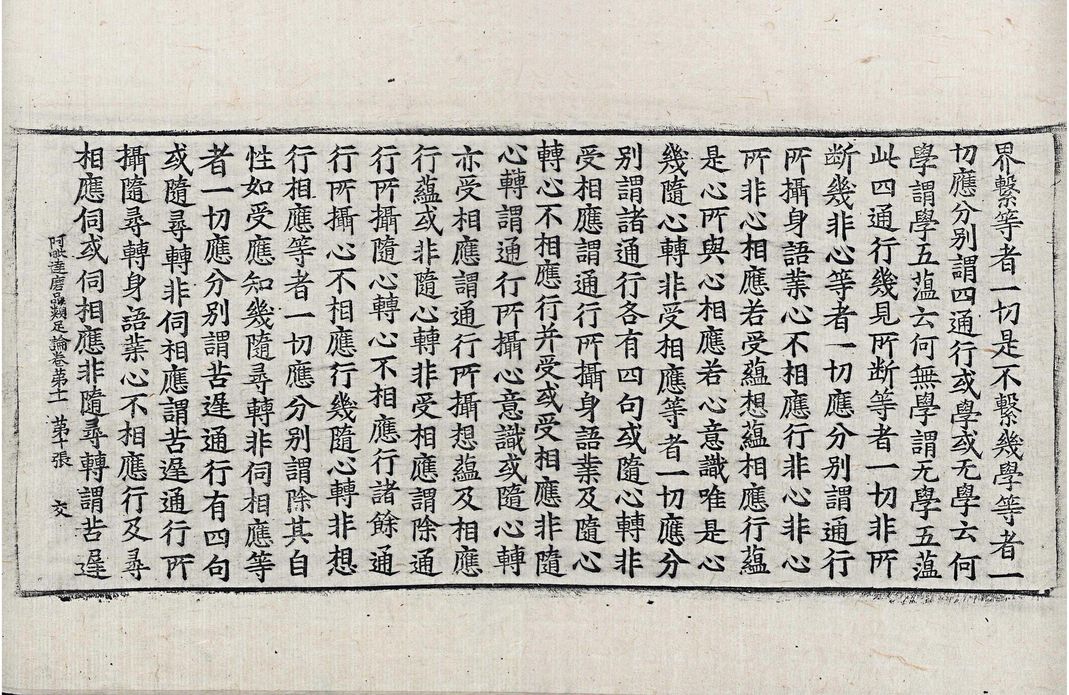 界繫等者一切是不繫幾學等者一
切應分別謂四通行或學或无學云何
學謂學五蕰云何無學謂无學五蕰
此四通行幾見所断等者一切非所
断幾非心等者一切應分別謂通行
所攝身語業心不相應行非心非心
所非心相應若受蕰想蕰相應行蕰
是心所與心相應若心意識唯是心
幾隨心轉非受相應等者一切應分
別謂諸通行各有四句或隨心轉非
受相應謂通行所攝身語業及隨心
轉心不相應行并受或受相應非隨
心轉謂通行所攝心意識或隨心轉
亦受相應謂通行所攝想蕰及相應
行蕰或非隨心轉非受相應謂除通
行所攝隨心轉心不相應行諸餘通
行所攝心不相應行幾隨心轉非想
行相應等者一切應分别謂除其自
性如受應知幾隨尋轉非伺相應等
者一切應分別謂苦遲通行有四句
或隨尋轉非伺相應謂苦遲通行所
攝隨尋轉身語業心不相應行及尋
阿毗達磨品類足論卷第十一 第十張 交
相應伺或伺相應非隨尋轉謂苦遲